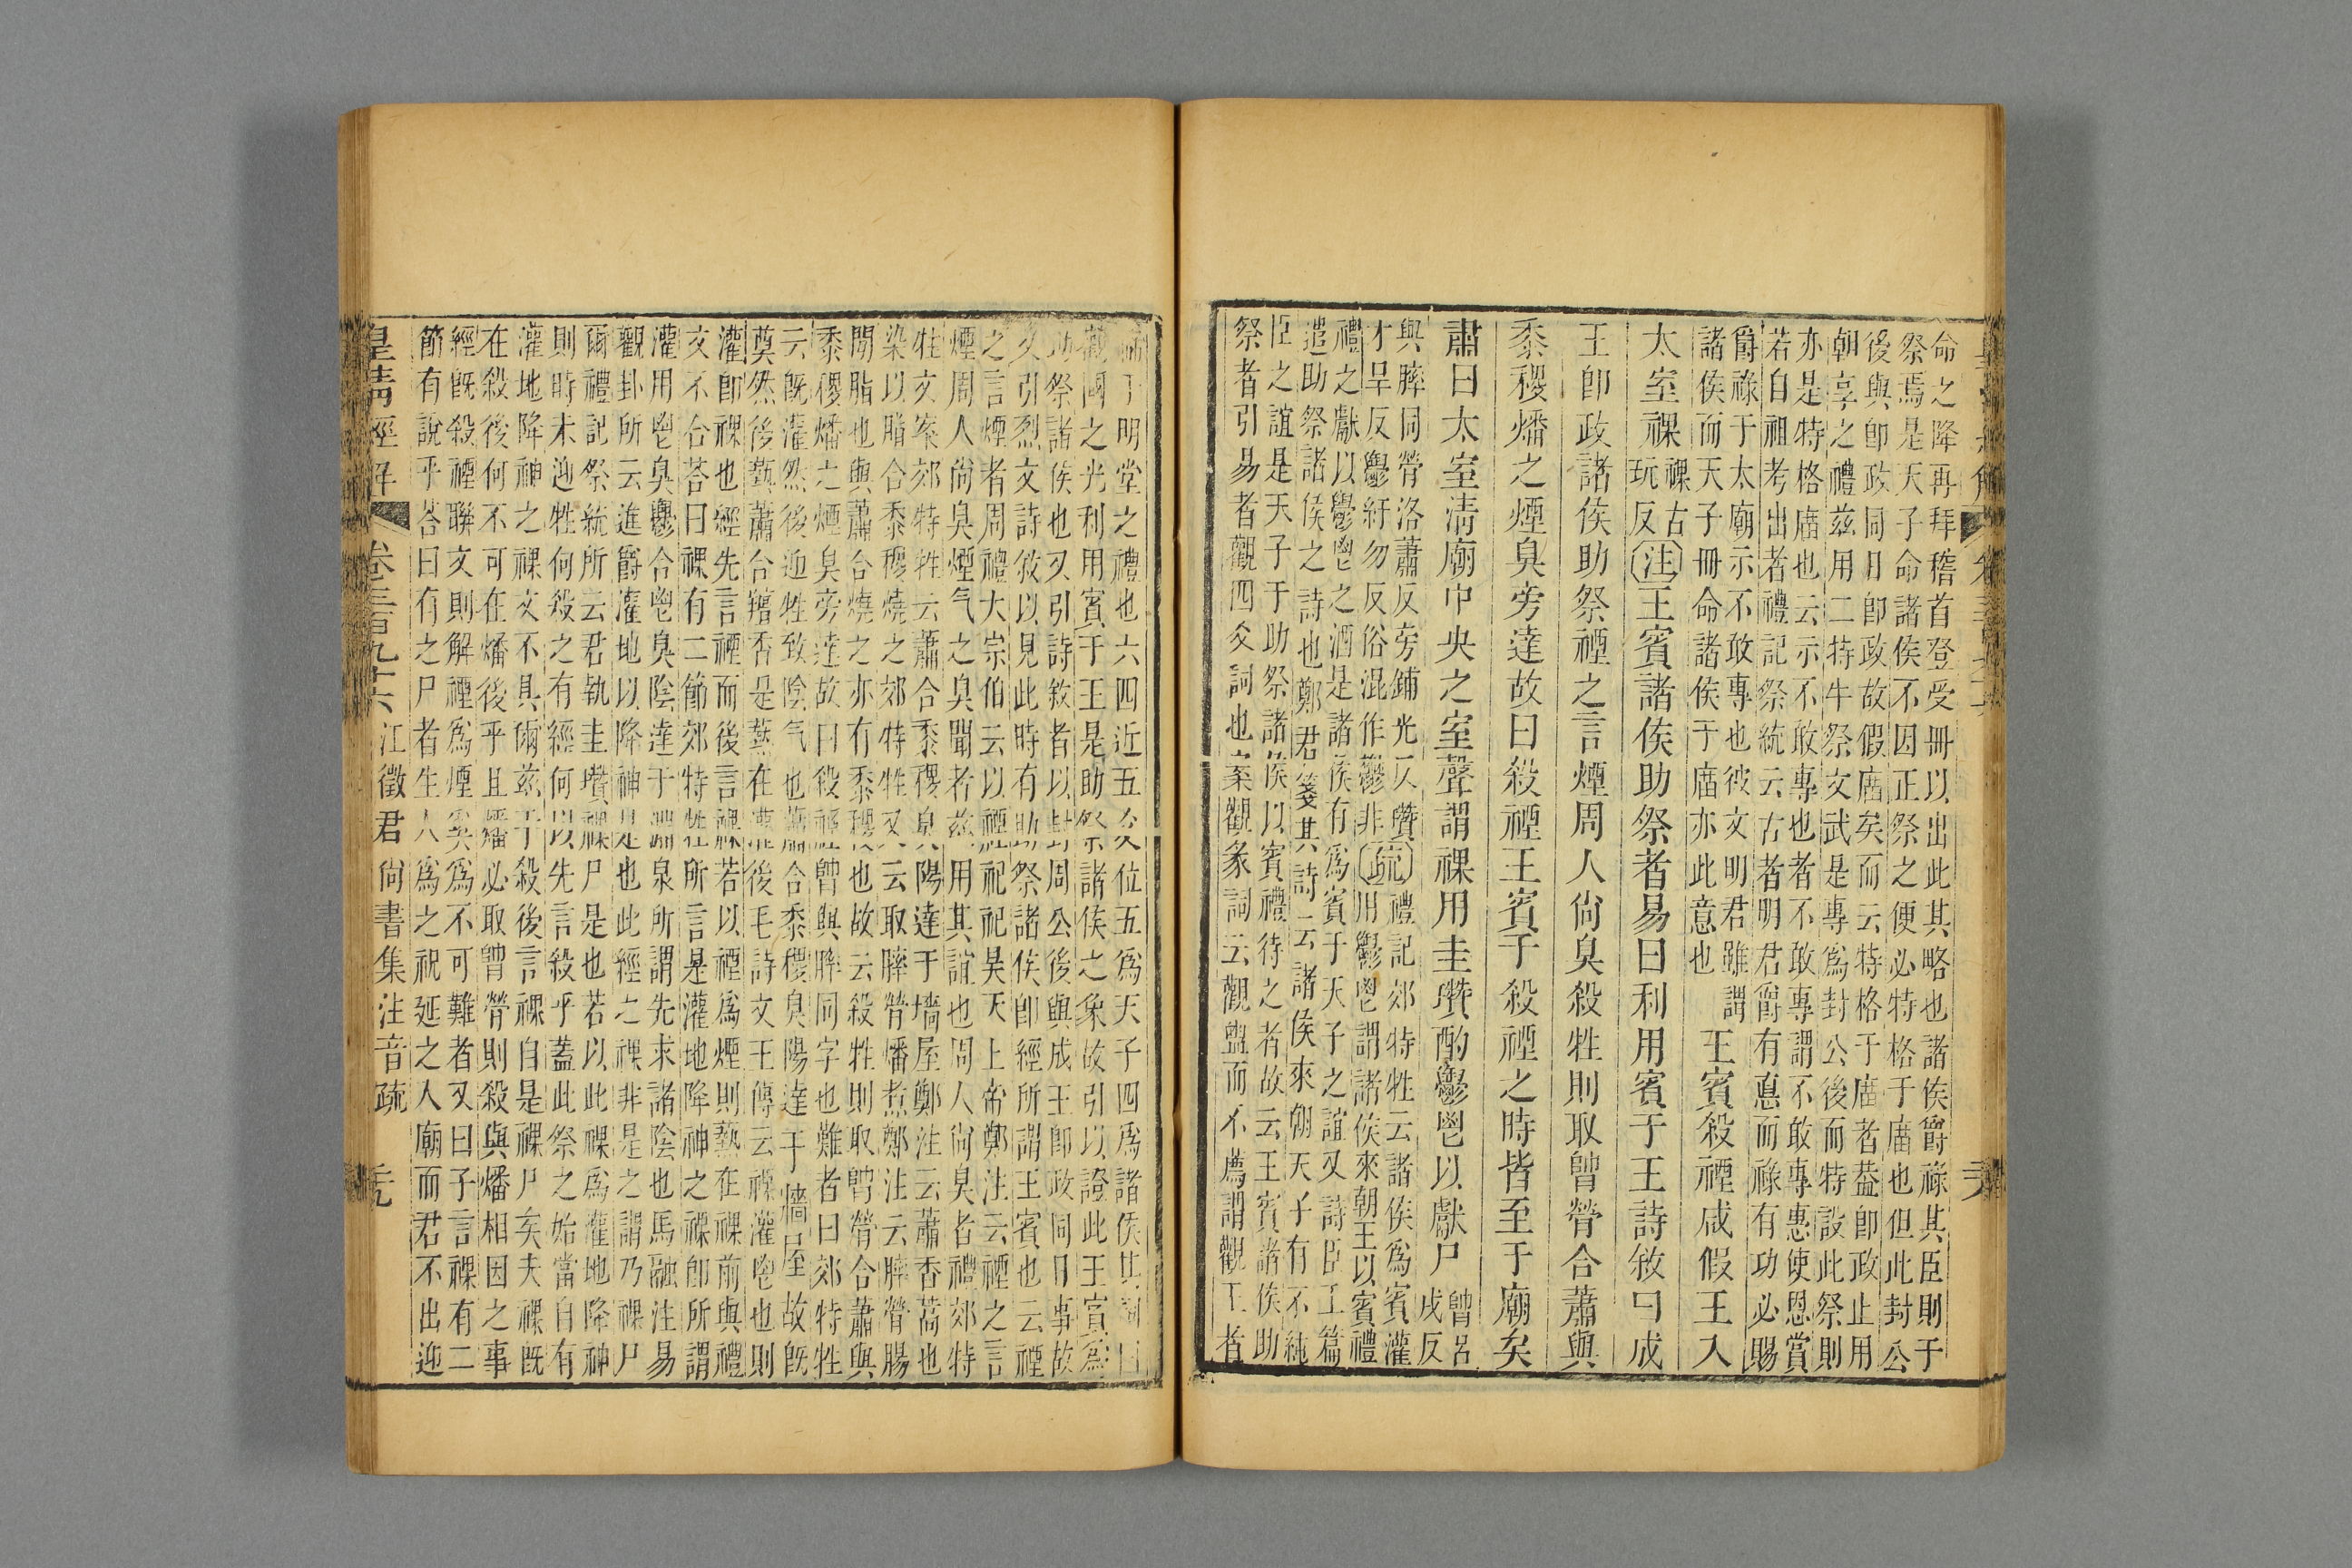 命之降再拜稽首登受冊以出此其略也諸侯爵祿其臣則于
祭焉是天子命諸侯不因正祭之便必特格于庿也但此封公
後與卽政同日卽政故假庿矣而云特格于庿者葢卽政止用
朝享之禮茲用二特牛祭文武是專爲封公後而特設此祭則
亦是特格庿也云示不敢專也者不敢專謂不敢專惠使恩賞
若自祖考出者禮記祭統云古者明君爵有惪而祿有功必賜
爵祿于太廟示不敢專也彼文明君雖謂
諸侯而天子冊命諸侯于庿亦此意也
王賓殺禋咸假王入
太室祼
祼古
玩反
注王賓諸侯助祭者易曰利用賓于王詩敘曰成
王卽政諸侯助祭禋之言煙周人尙臭殺牲則取膟膋合蕭與
黍稷燔之煙臭旁達故曰殺禋王賓于殺禋之時皆至于廟矣
肅曰太室淸廟中央之室聲謂祼用圭瓚酌鬱鬯以獻尸
與膟同膋洛蕭反旁鋪光反瓚
才旱反鬱紆勿反俗混作鬱非
疏禮記郊特牲云諸侯爲賓灌
用鬱鬯謂諸侯來朝王以賓禮
禮之獻以鬱鬯之酒是諸侯有爲賓于天子之誼又詩臣工篇
遣助祭諸侯之詩也鄭君箋其詩云諸侯來朝天子有不純
臣之誼是天子于助祭諸侯以賓禮待之者故云王賓諸侯助
祭者引易者觀四爻詞也案觀彖詞云觀盥而不薦謂觀王者
明堂之禮也六四近五爻位五爲天子四爲諸侯其
觀國之光利用賓于王是助祭諸侯之象故引以證此王賓爲
助祭諸侯也又引詩敘者以封周公後與成王卽政同日事故
又引烈文詩敘以見此時有助祭諸侯卽經所謂王賓也云禋
之言煙者周禮大宗伯云以禋祀祀昊天上帝鄭注云禋之言
煙周人尙臭煙气之臭聞者茲用其誼也周人尙臭者禮郊特
牲文案郊特牲云蕭合黍稷臭陽達于墻屋鄭注云蕭香蒿也
染以脂合黍稷燒之郊特牲又云取膟膋燔燎鄭注云膟膋腸
閒脂也與蕭合燒之亦有黍稷也故云殺牲則取膟膋合蕭與
黍稷燔之煙臭旁達故曰殺禋與膟同字也難者曰郊特牲
云旣灌然後迎牲致陰气也蕭合黍稷臭陽達于墻屋故旣
奠然後爇蕭合羶香是爇在灌後毛詩文王傳云祼灌鬯也則
灌卽祼也經先言禋而後言祼若以禋爲煙則爇在祼前與禮
文不合荅曰祼有二節郊特牲所言是灌地降神之祼卽所謂
灌用鬯臭鬱合鬯臭陰達于淵泉所謂先求諸陰也馬融注易
觀卦所云進爵灌地以降神是也此經之祼非是之謂乃祼尸
爾禮記祭統所云君執圭瓚祼尸是也若以此祼爲灌地降神
則時未迎牲何殺之有經何以先言殺乎葢此祭之始當自有
灌地降神之祼文不具爾茲于殺後言祼自是祼尸矣夫祼旣
在殺後何不可在燔後乎且燔必取膟膋則殺與燔相因之事
經旣殺禋聯文則解禋爲煙奚爲不可難者又曰子言祼有二
節有說乎荅曰有之尸者生人爲之祝延之人廟而君不出迎
皇淸經解 卷三百九十六 江徵君尙書集注音疏